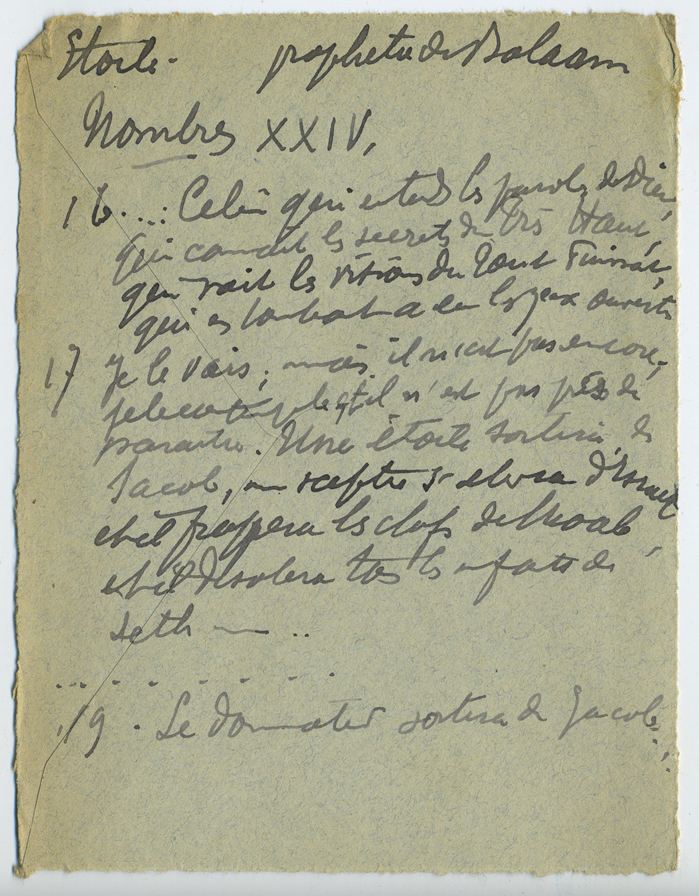 Etoile. prophetie de Balaam
Nombres XXIV,
16...: Celui qui entend les paroles de Dieu,
qui connait les secrets du Très Haut,
qui voit les visions du Tout Puissant,
qui en tombant a eu les yeux ouverts
17 Je le vois; mais il n'est pas encore;
je le contemple il n'est pas près de
paraitre. Une étoile sortira de
Jacob, un sceptre s'elevera d'Israel
et il frappera les chefs de Moab,
et il désolera tous les enfants de
Seth — ..
... . . . . . .
19. Le dominateur sortira de Jacob